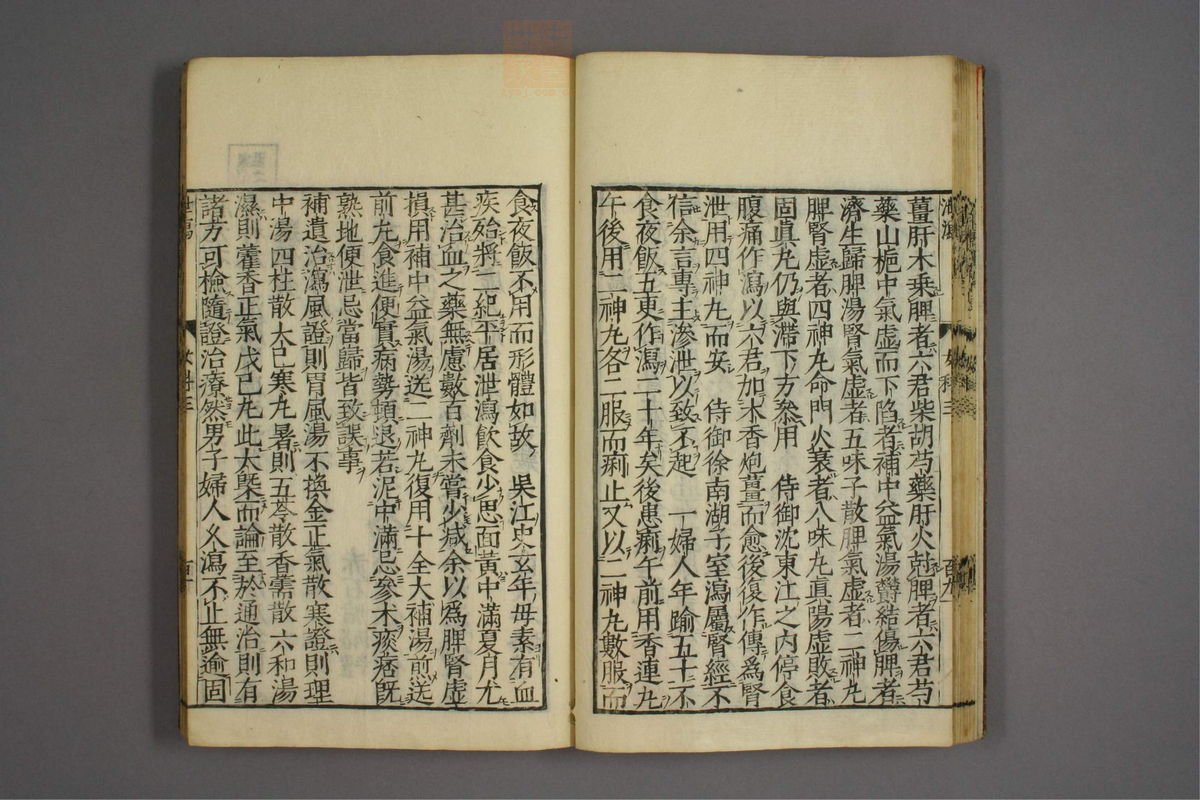 薑肝木乘脾者六君柴胡芍藥肝火尅脾者六君芍
藥山梔中氣虛而下陷者補中益氣湯鬱結傷脾者
濟生歸脾湯腎氣虛者五味子散脾氣虛者二神丸
脾腎虛者四神丸命門火衰者八味丸眞陽虛敗者
固眞丸仍與滯下方叅用　侍御沈東江之内停食
腹痛作瀉以六君加木香炮薑而愈後復作傳爲腎
泄用四神丸而安　侍御徐南湖子室瀉屬腎經不
信余言專主滲泄以致不起　一婦人年踰五十不
食夜飯五更作瀉二十年矣後患痢午前用香連丸
午後用二神丸各二服而痢止又以二神丸數服而
食夜飯不用而形體如故　吳江史玄年母素有血
疾殆將二紀平居泄瀉飲食少思面黃中滿夏月尤
甚治血之藥無慮數百劑未嘗少减余以爲脾腎虛
損用補中益氣湯送二神丸復用十全大補湯煎送
前丸食進便實病勢頓退若泥中滿忌參术痰痞忌
熟地便泄忌當歸皆致誤事
補遺治瀉風證則胃風湯不換金正氣散寒證則理
中湯四柱散大已寒丸暑則五苓散香薷散六和湯
濕則藿香正氣戊己丸此大槩而論至於通治則有
諸方可檢隨證治療然男子婦人久瀉不止無逾固
女科三
百十